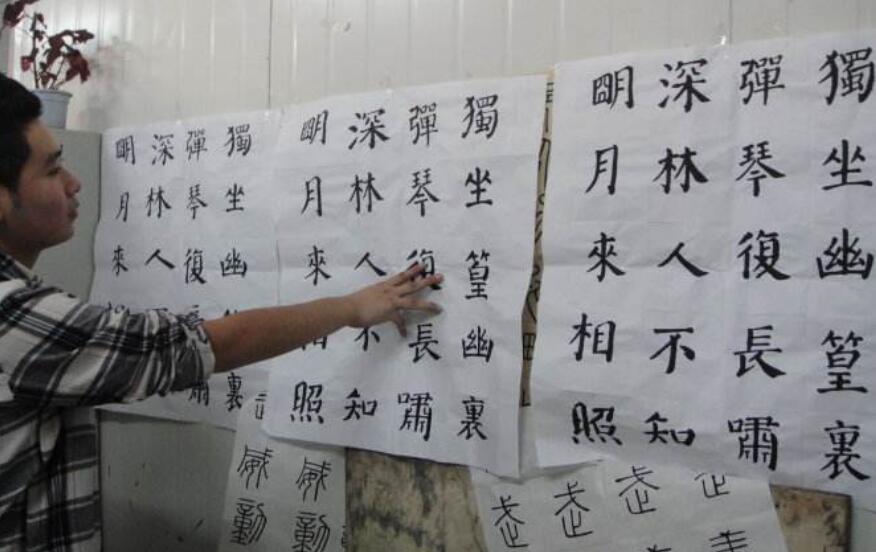 獨坐幽篁裏
彈琴復長嘯
深林人不知
朙月來相照
獨坐篁幽裏
彈琴復長嘯
深林人不知
朙月來相照
獨坐幽裏
彈琴復長嘯
深林人不
朙月來相
威動
威動